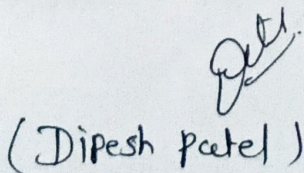 (Dipesh Patel)